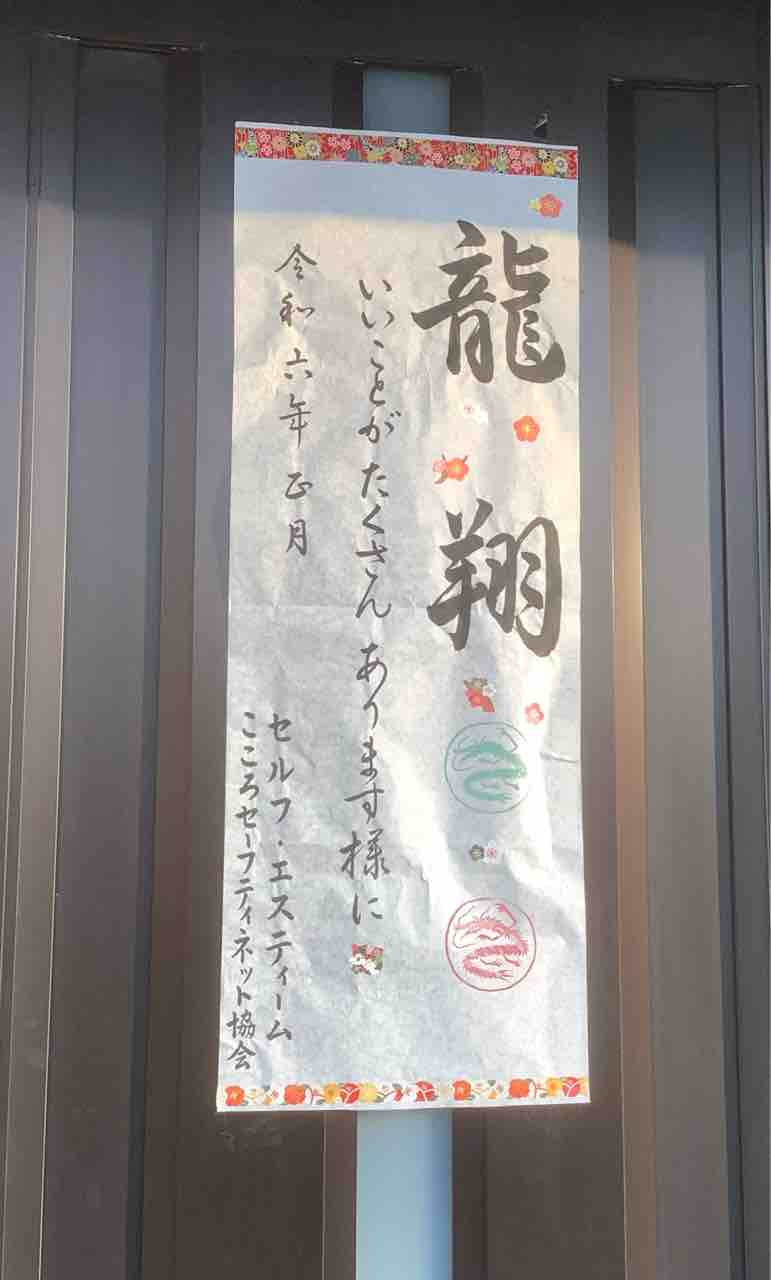 龍翔
いいことがたくさんあります様に
令和六年正月
セルフ・エスティーム
こころセーフティネット協会